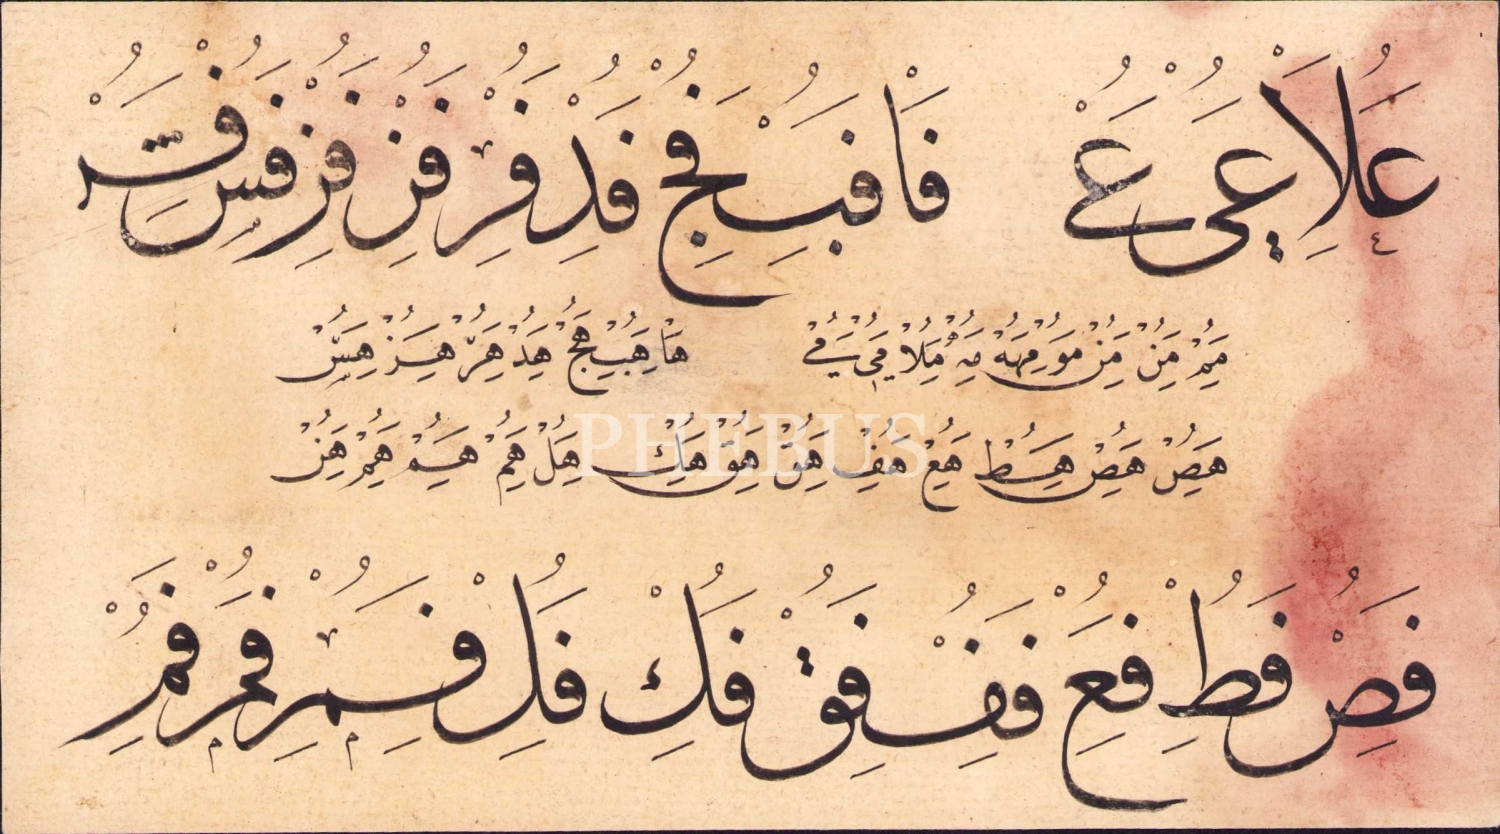 علا عي عے فا فب فج فد فر فر فر فس
مم من من مو مهه مه ملا مي مے ها هب هج هد هر هر هس
هص هص هط هع هف هق هق هك هل هم هم هم هن
PHEBUS
فص فط فع فف فق فك فل فم فم فم